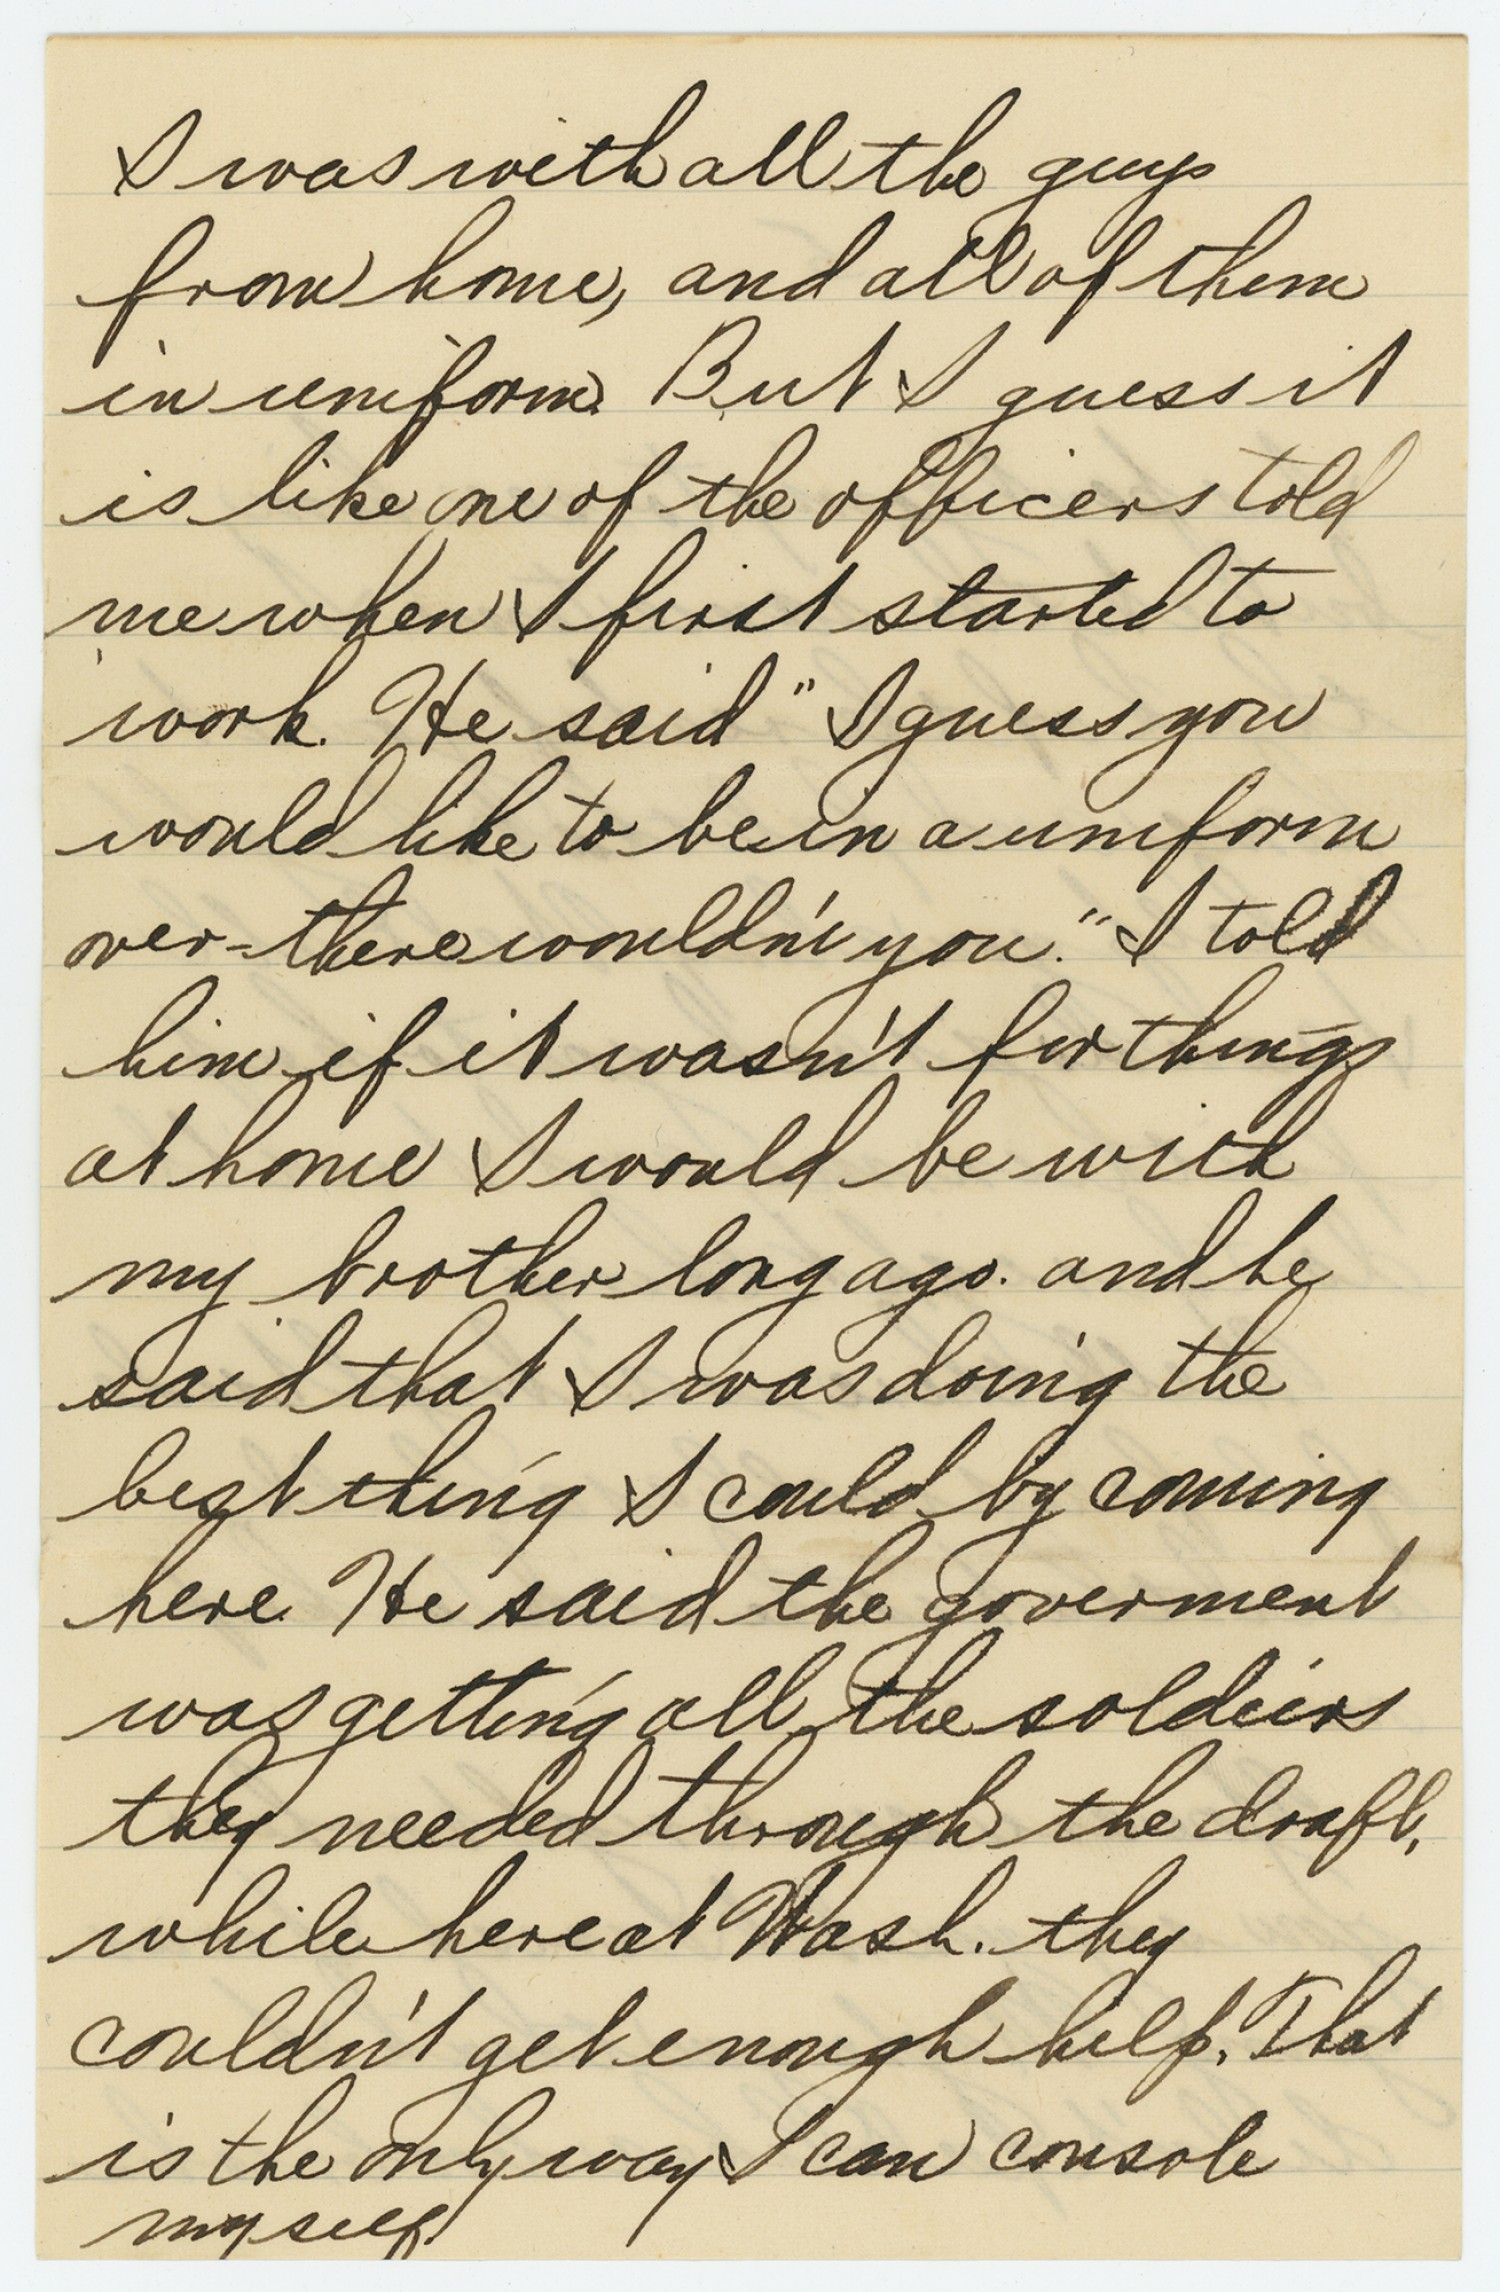 I was with all the guys
from home, and all of them
in uniform. But I guess it
is like one of the officers told
me when I first started to
work. He said " I guess you
would like to be in a uniform
over-there wouldn't you." I told
him if it wasn't for things
at home I would be with
my brother long ago. and he
said that I was doing the
best thing I could by coming
here. He said the goverment
was getting all the soldiers
they needed through the draft,
while here at Wash. they
couldn't get enough help. That
is the only way I can console
myself.